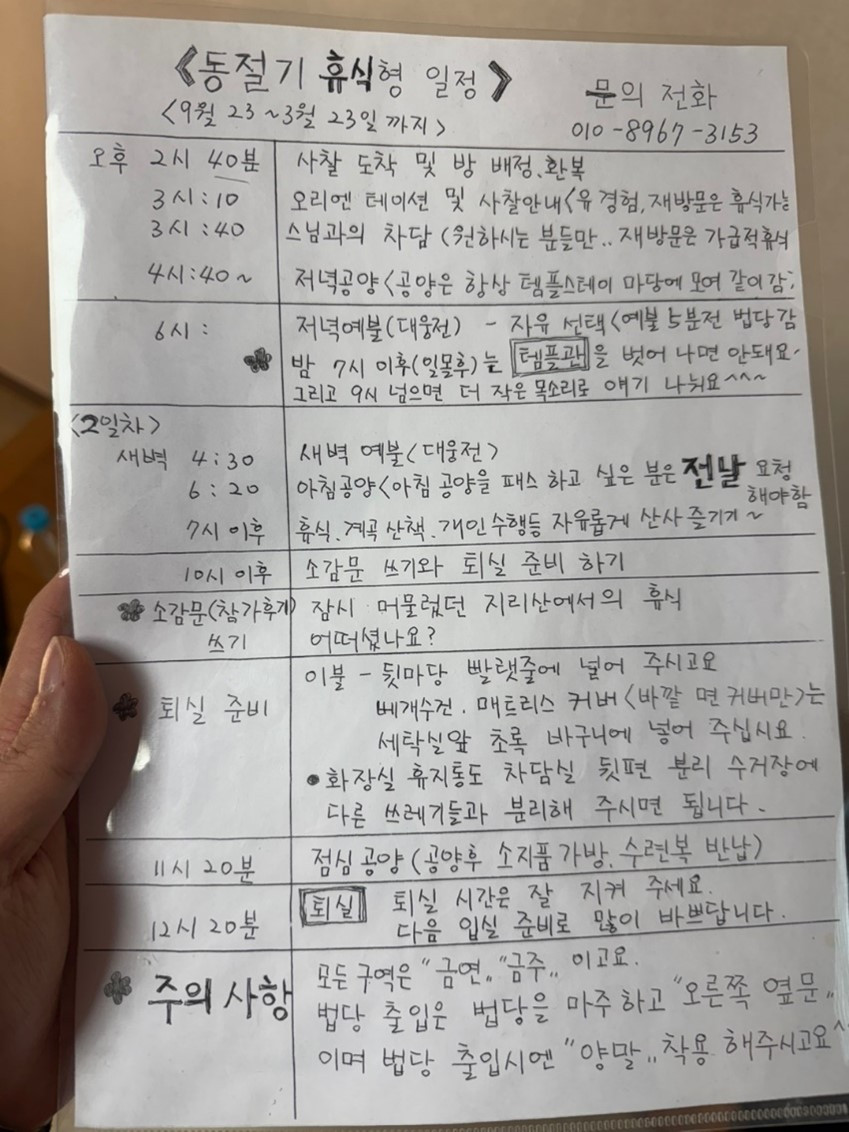 <동절기 휴식형 일정>
<9월 23~3월 23일 까지>
문의 전화
010-8967-3153
오후 2시 40분 사찰 도착 및 방 배정, 환복
3시:10 오리엔 테이션 및 사찰안내<유 경험, 재방문은 휴식가능
3시:40 스님과의 차담 (원하시는 분들만.. 재방문은 가급적휴식
4시:40~ 저녁공양<공양은 항상 템플스테이 마당에 모여 같이 감
6시: 저녁예불(대웅전) - 자유 선택<예불 5분전 법당감
밤 7시 이후(일몰후)는 템플관을 벗어 나면 안돼요.
그리고 9시 넘으면 더 작은 목소리로 얘기 나눠요^^~
<2일차>
새벽 4:30 새벽 예불<대웅전>
6:20 아침공양<아침 공양을 패스 하고 싶은 분은 전날 요청
해야함
7시 이후 휴식, 계곡 산책, 개인수행등 자유롭게 산사 즐기기~
10시 이후 소감문 쓰기와 퇴실 준비 하기
소감문(참가후기) 잠시 머물렀던 지리산에서의 휴식
쓰기 어떠셨나요?
이불 - 뒷마당 빨랫줄에 널어 주시고요
퇴실 준비 베개수건. 매트리스 커버<바깥 면 커버만>는
세탁실앞 초록 바구니에 넣어 주십시요.
• 화장실 휴지통도 차담실 뒷편 분리 수거장에
다른 쓰레기들과 분리해 주시면 됩니다.
11시 20분 점심 공양 (공양후 소지품 가방, 수련복 반납)
12시 20분 퇴실 퇴실 시간은 잘 지켜 주세요.
다음 입실 준비로 많이 바쁘답니다.
주의 사항 모든 구역은 "금연" "금주" 이고요.
법당 출입은 법당을 마주 하고 "오른쪽 옆문"
이며 법당 출입시엔 "양말" 착용 해주시고요^